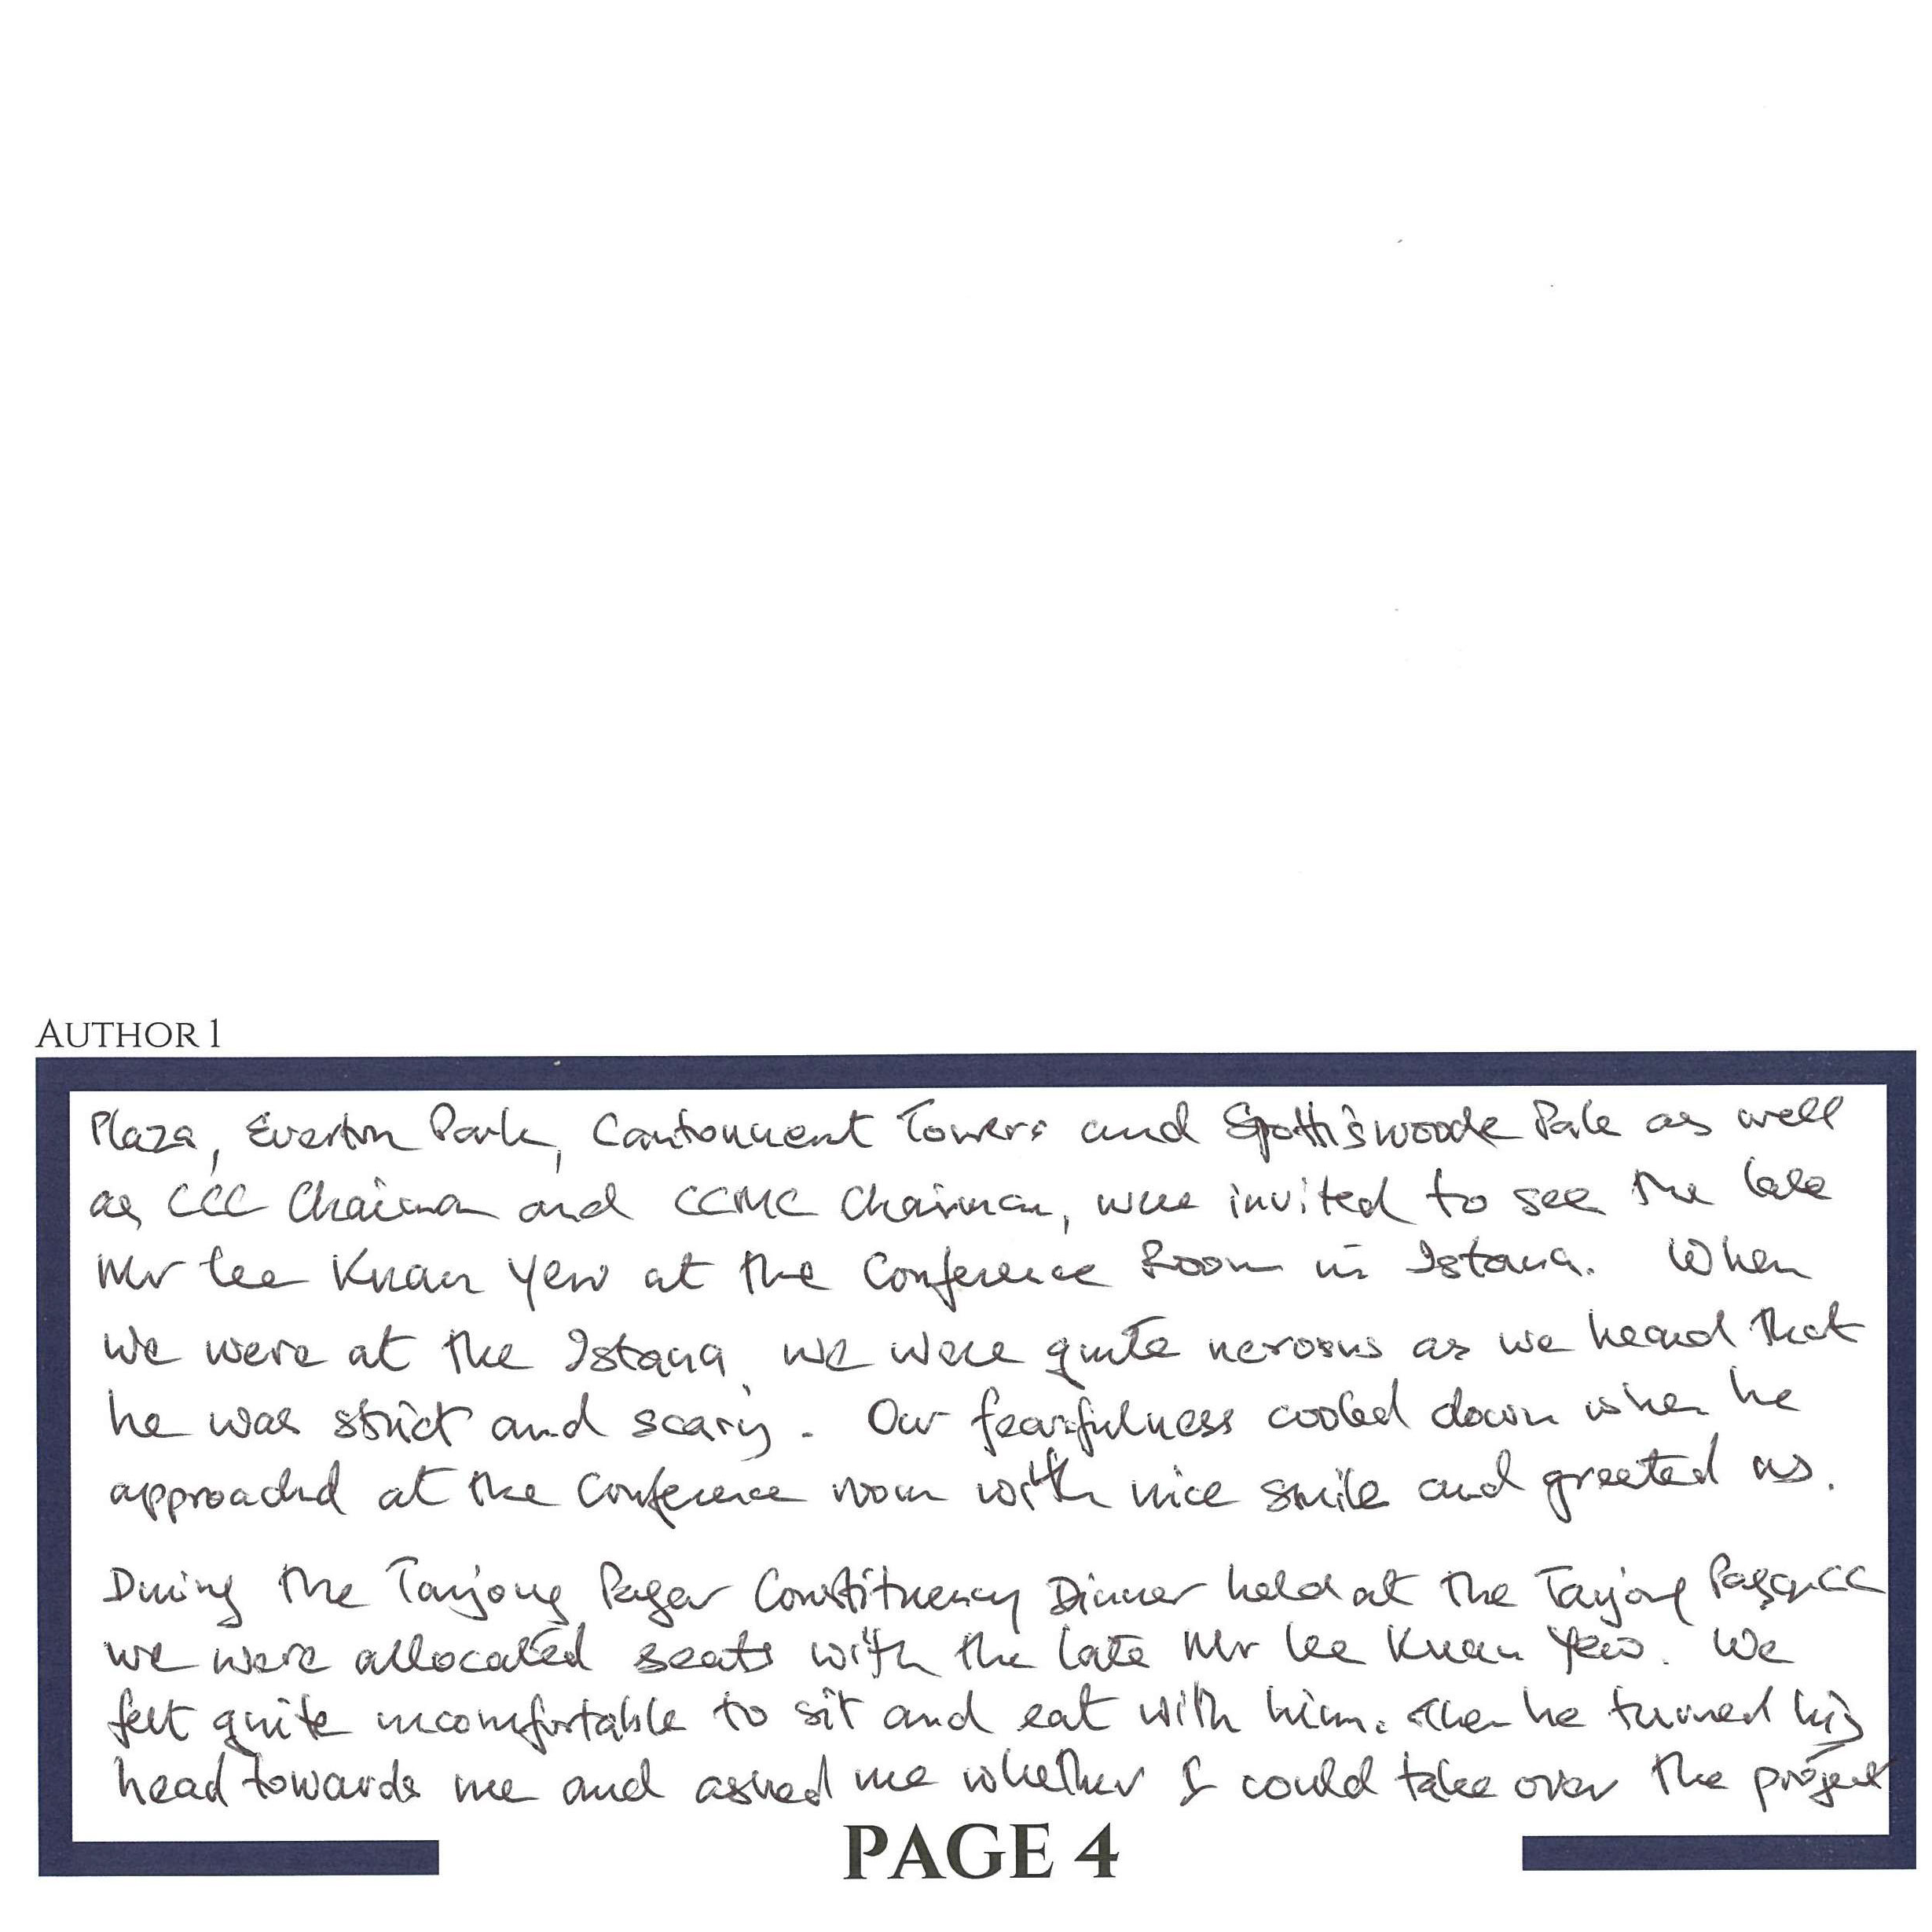 AUTHOR 1
Plaza, Everton Park, Cantonment Towers and Spottiswoode Park as well
as CCC Chairman and CCMC Chairman, were invited to see the late
Mr Lee Kuan Yew at the Conference Room in Istana. When
we were at the Istana, we were quite nervous as we heard that
he was strict and scary. Our fearfulness cooled down when he
approached at the Conference room with nice smile and greeted us.
During the Tanjong Pagar Constituency Dinner held at the Tanjong Pagar CC
we were allocated seats with the late Mr Lee Kuan Yew. We
felt quite uncomfortable to sit and eat with him. Then he turned his
head towards me and asked me whether I could take over the project
PAGE 4